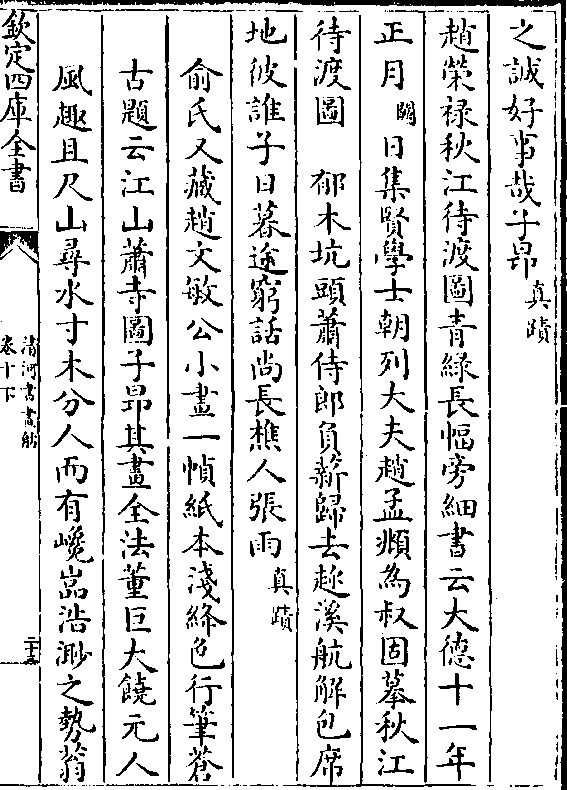 之誠好事哉子昂真蹟
趙榮禄秋江待渡圖青緑長幅旁細書云大德十一年
正月闕日集賢學士朝列大夫趙孟頫為叔固摹秋江
待渡圖　郁木坑頭蕭侍郎負薪歸去趂溪航解包席
地彼誰子日暮途窮話尚長樵人張雨真蹟
俞氏又藏趙文敏公小畫一幀紙本淺絳色行筆蒼
古題云江山蕭寺圖子昂其畫全法董巨大饒元人
風趣且尺山尋水寸木分人而有巉嵓浩渺之勢蓊
欽定四庫全書
清河書畫舫
卷十下
二十三